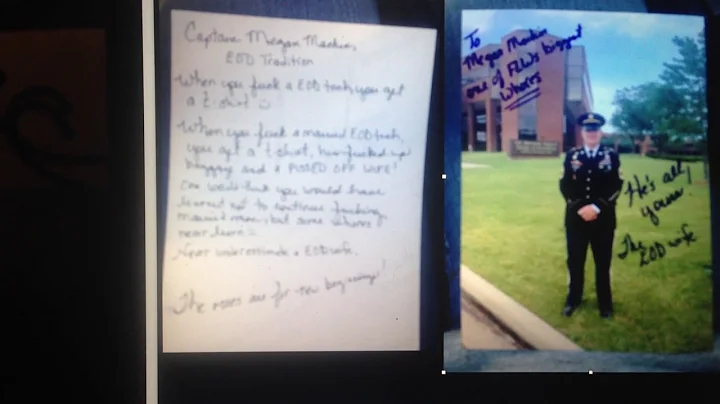 Captain Megan
EOD Tradition
When you fuck a EOD tech, you get
a t-shirt
When you fuck a married EOD tech,
you get a t-shirt, his fucked up
baggage and a PISSED OFF WIFE!
One would think you would have
learnt not to continue fucking
married men, but some whores
never learn
Never underestimate a EOD wife.
The roses are for new beginnings!
To
Megan
one of FLWs biggest
whores
He's all
yours!
The
EOD wife